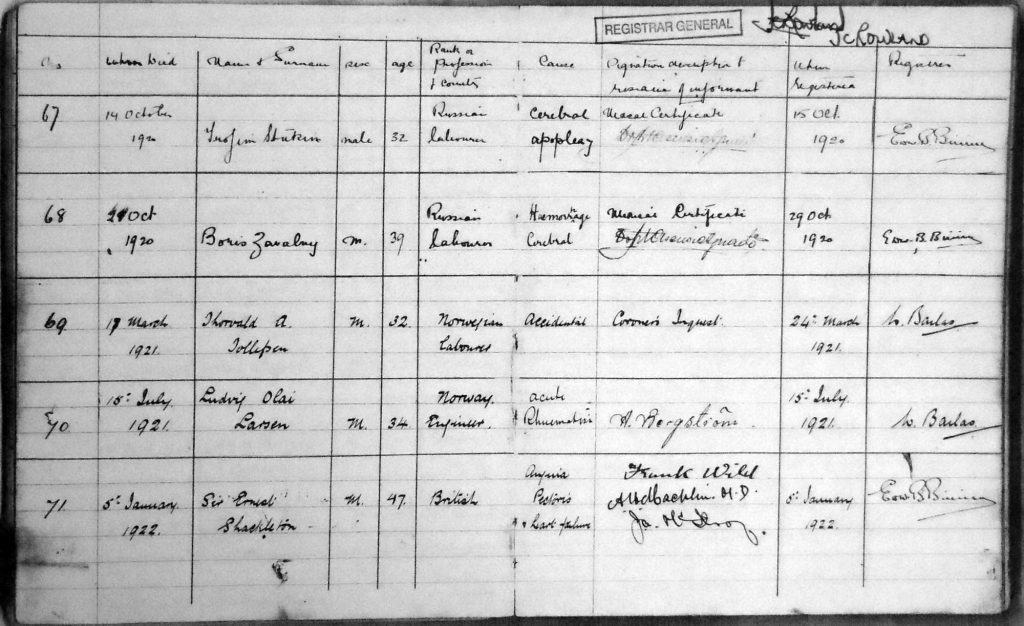 REGISTRAR GENERAL
J C Rowland
When Died Name & Surname sex age Rank or Profession & Country Cause Signature description & residence of informant When Registered Registrar
67 14 October 1920 male 32 Russian labourer cerebral apoplexy Medical Certificate 15 Oct 1920 Edw B Binnie
68 Oct 1920 Boris Zavalny M. 39 Russian labourer Haemorrhage Cerebral Medical Certificate 29 Oct 1920 Edw. B. Binnie
69 17 March 1921. Thorvald A. M. 32. Norwegian Labourer Accidental Coroner's Inquest. 24th March 1921. W. Barlas
70 15th July 1921. Ludvig Olai Larsen M. 34. Norway. Engineer. acute Rheumatism H. Bergström. 15th July 1921. W. Barlas
71 5th January 1922. Sir Ernest Shackleton M. 47. British Angina Pectoris & heart failure Frank Wild A H Macklin M.D. Ja. McIlroy. 5th January 1922. Edw B Binnie